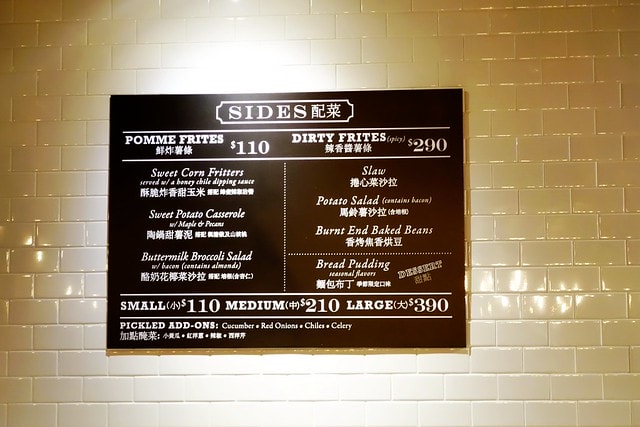 SIDES 配菜
POMME FRITES $110
鮮炸薯條
DIRTY FRITES (spicy) $290
辣香醬薯條
Sweet Corn Fritters
served w/ a honey chile dipping sauce
酥脆炸香甜玉米 搭配 蜂蜜辣椒沾醬
Sweet Potato Casserole
w/ Maple & Pecans
陶鍋甜薯泥 搭配 楓糖漿及山核桃
Buttermilk Broccoli Salad
w/ bacon (contains almonds)
酪奶花椰菜沙拉 搭配 培根(含杏仁)
Slaw
捲心菜沙拉
Potato Salad (contains bacon)
馬鈴薯沙拉 (含培根)
Burnt End Baked Beans
香烤焦香烘豆
Bread Pudding
seasonal flavors
麵包布丁 季節限定口味
DESSERT
甜點
SMALL(小)$110 MEDIUM(中)$210 LARGE(大)$390
PICKLED ADD-ONS: Cucumber • Red Onions • Chiles • Celery
加點醃菜: 小黃瓜 • 紅洋蔥 • 辣椒 • 西洋芹